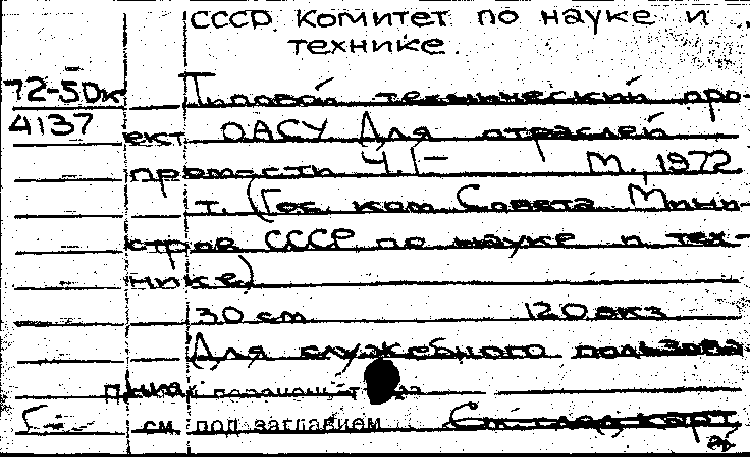 СССР. Комитет по науке и
технике.
72-5Dк Типовой технический про-
4137 ект ОАСУ Для отраслей
пром-сти Ч.1- М., 1972
т. (Гос. ком Совета Мини-
стров СССР по науке и тех-
нике)
30 см 120 экз
Для служебного пользова-
ния
см. под заглавием См. след. карт.